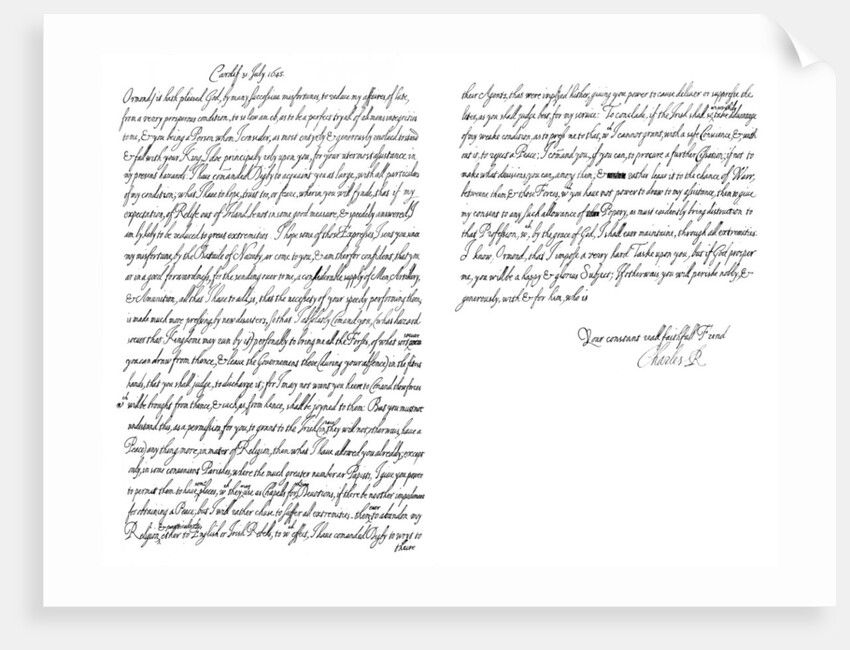 Cardif 31 July 1645.
Ormond, it hath pleased God, by many successive misfortunes, to reduce my affaires, of late,
from a very prosperous condition, to so low an eb, as to be a perfect tryall of all mens integrities
to me; & you being a Person whom I consider, as most entyrely & generously resolved to stand
& fall with your King, I doe principally rely upon you, for your uttermost assistance, in
my present hazards: I have com̃anded Digby to acquaint you at large, with all particulars
of my condition; what I have to hope, trust too, or feare; wherin you will fynde, that if my
expectation, of Relife out of Irland, be not in some good measure, & speedely answered, I
am lykely to be reduced to great extremities. I hope some of those Expresses I sent you since
my misfortune, by the Battaile of Nazeby, ar come to you, & am therfor confident that you
ar in a good forwardness, for the sending over to me, a considerable supply of Men, Artillery,
& Amunition; all that I have to add is, that the necessety of your speedy performing them,
is made much more pressing by new disasters; so that I absolutly Comand you, (what hazard
soever that Kingdome may run by it) personally to bring me all the Forses, of what sort soever
you can draw from thence, & leave the Governement there (during your absence) in the fittest
hands, that you shall judge, to discharge it; for I may not want you heere to Comand those forces
wch will be brought from thence, & such as from hence, shall be joyned to them: But you must not
understand this, as a permission for you, to grant to the Irish (in case they will not, otherwais, have a
Peace) any thing more, in mater of Religion, than what I have allowed you already; except
only, in some convenient Parishes, where the much greater number ar Papists, I give you power
to permitt them to have some places, wch they may use as Chapels for theire Devotions, if there be no other impediment
for obtaining a Peace; but I will rather chuse to suffer all extremities, then ever to abandon my
Religion, & particularly ether to English or Irish Rebells, to wch effect, I have comanded Digby to wryt to
theire
their Agents, that were imployed hither, giving you power to cause deliver or suppresse the
letter, as you shall judge best for my service: To conclude, if the Irish shall so unworthily take advantage
of my weake condition, as to press me to that, wch I cannot grant, with a safe Consience, & with
out it, to reject a Peace; I com̃and you, if you can, to procure a further Cessation; if not to
make what devisions you can, among them, & rather leave it to the chance of Warr,
betweene them & those Forces, wch you have not power to draw to my assistance, then to give
my consent to any such allowance of Popery, as must evidently bring destruction to
that Profession, wch by the grace of God, I shall ever maintaine, through all extremities.
I know, Ormond, that I impose a very hard Taske upon you, but if God prosper
me, you will be a happy & glorius Subject; If otherwais, you will perishe nobly, &
generously, with & for him, who is
Your constant reall faithfull Frend
Charles R